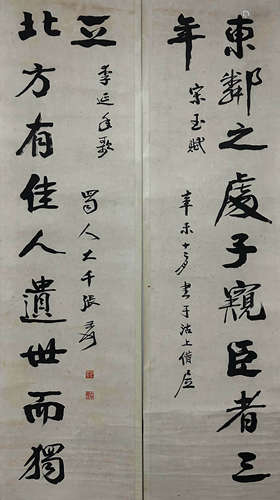 東鄰之處子窺臣者三
年
宋玉賦
辛未十月書于沽上借居
北方有佳人遺世而獨
立
李延年歌
蜀人大千張爰